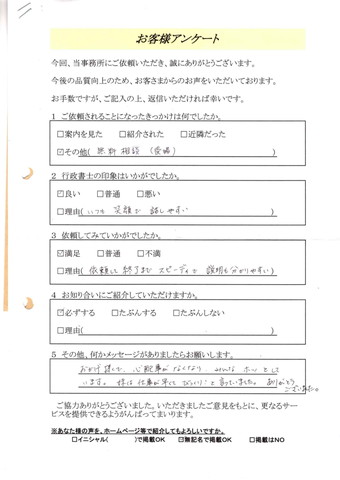 お客様アンケート
今回、当事務所にご依頼いただき、誠にありがとうございます。
今後の品質向上のため、お客さまからのお声をいただいております。
お手数ですが、ご記入の上、返信いただければ幸いです。
1 ご依頼されることになったきっかけは何でしたか。
□案内を見た □紹介された □近隣だった
☑その他( 無料相談 )
2 行政書士の印象はいかがでしたか。
☑良い □普通 □悪い
□理由( いつも 笑顔で 話しやすい )
3 依頼してみていかがでしたか。
☑満足 □普通 □不満
□理由( 依頼して 終了まで スピーディで 説明も分かりやすい )
4 お知り合いにご紹介していただけますか。
☑必ずする □たぶんする □たぶんしない
□理由( )
5 その他、何かメッセージがありましたらお願いします。
心配事がなくなり ホッとして
います。 仕事が早くて びっくり!と言っていました。 ありがとう
ございました。
ご協力ありがとうございました。いただきましたご意見をもとに、更なるサー
ビスを提供できるようがんばってまいります。
※あなた様の声を、ホームページ等で紹介してもよろしいですか。
□イニシャル( )で掲載OK ☑無記名で掲載OK □掲載はNO